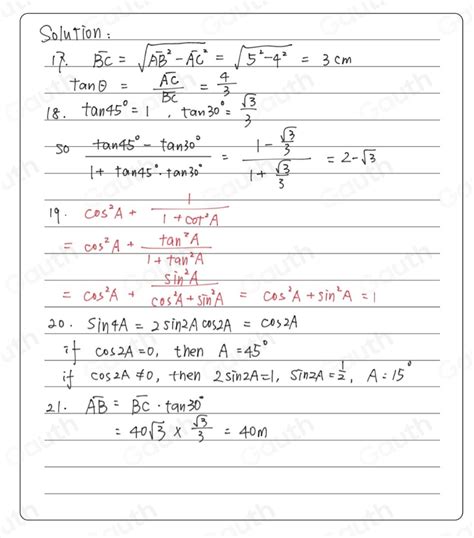 Solution:
17. BC̄ = √(AB̄² - AC̄²) = √(5² - 4²) = 3 cm
tanθ = AC̄/BC̄ = 4/3
18. tan45° = 1 , tan30° = √3/3
so (tan45° - tan30°)/(1 + tan45° · tan30°) = (1 - √3/3)/(1 + √3/3) = 2-√3
19. cos²A + 1/(1 + cot²A)
= cos²A + tan²A/(1 + tan²A)
= cos²A + sin²A/(cos²A + sin²A) = cos²A + sin²A = 1
20. Sin4A = 2 sin2A cos2A = cos2A
if cos2A = 0, then A = 45°
if cos2A ≠ 0, then 2 sin2A = 1, Sin2A = 1/2, A = 15°
21. AB̄ = BC̄ · tan30°
= 40√3 × √3/3 = 40m
Gauth